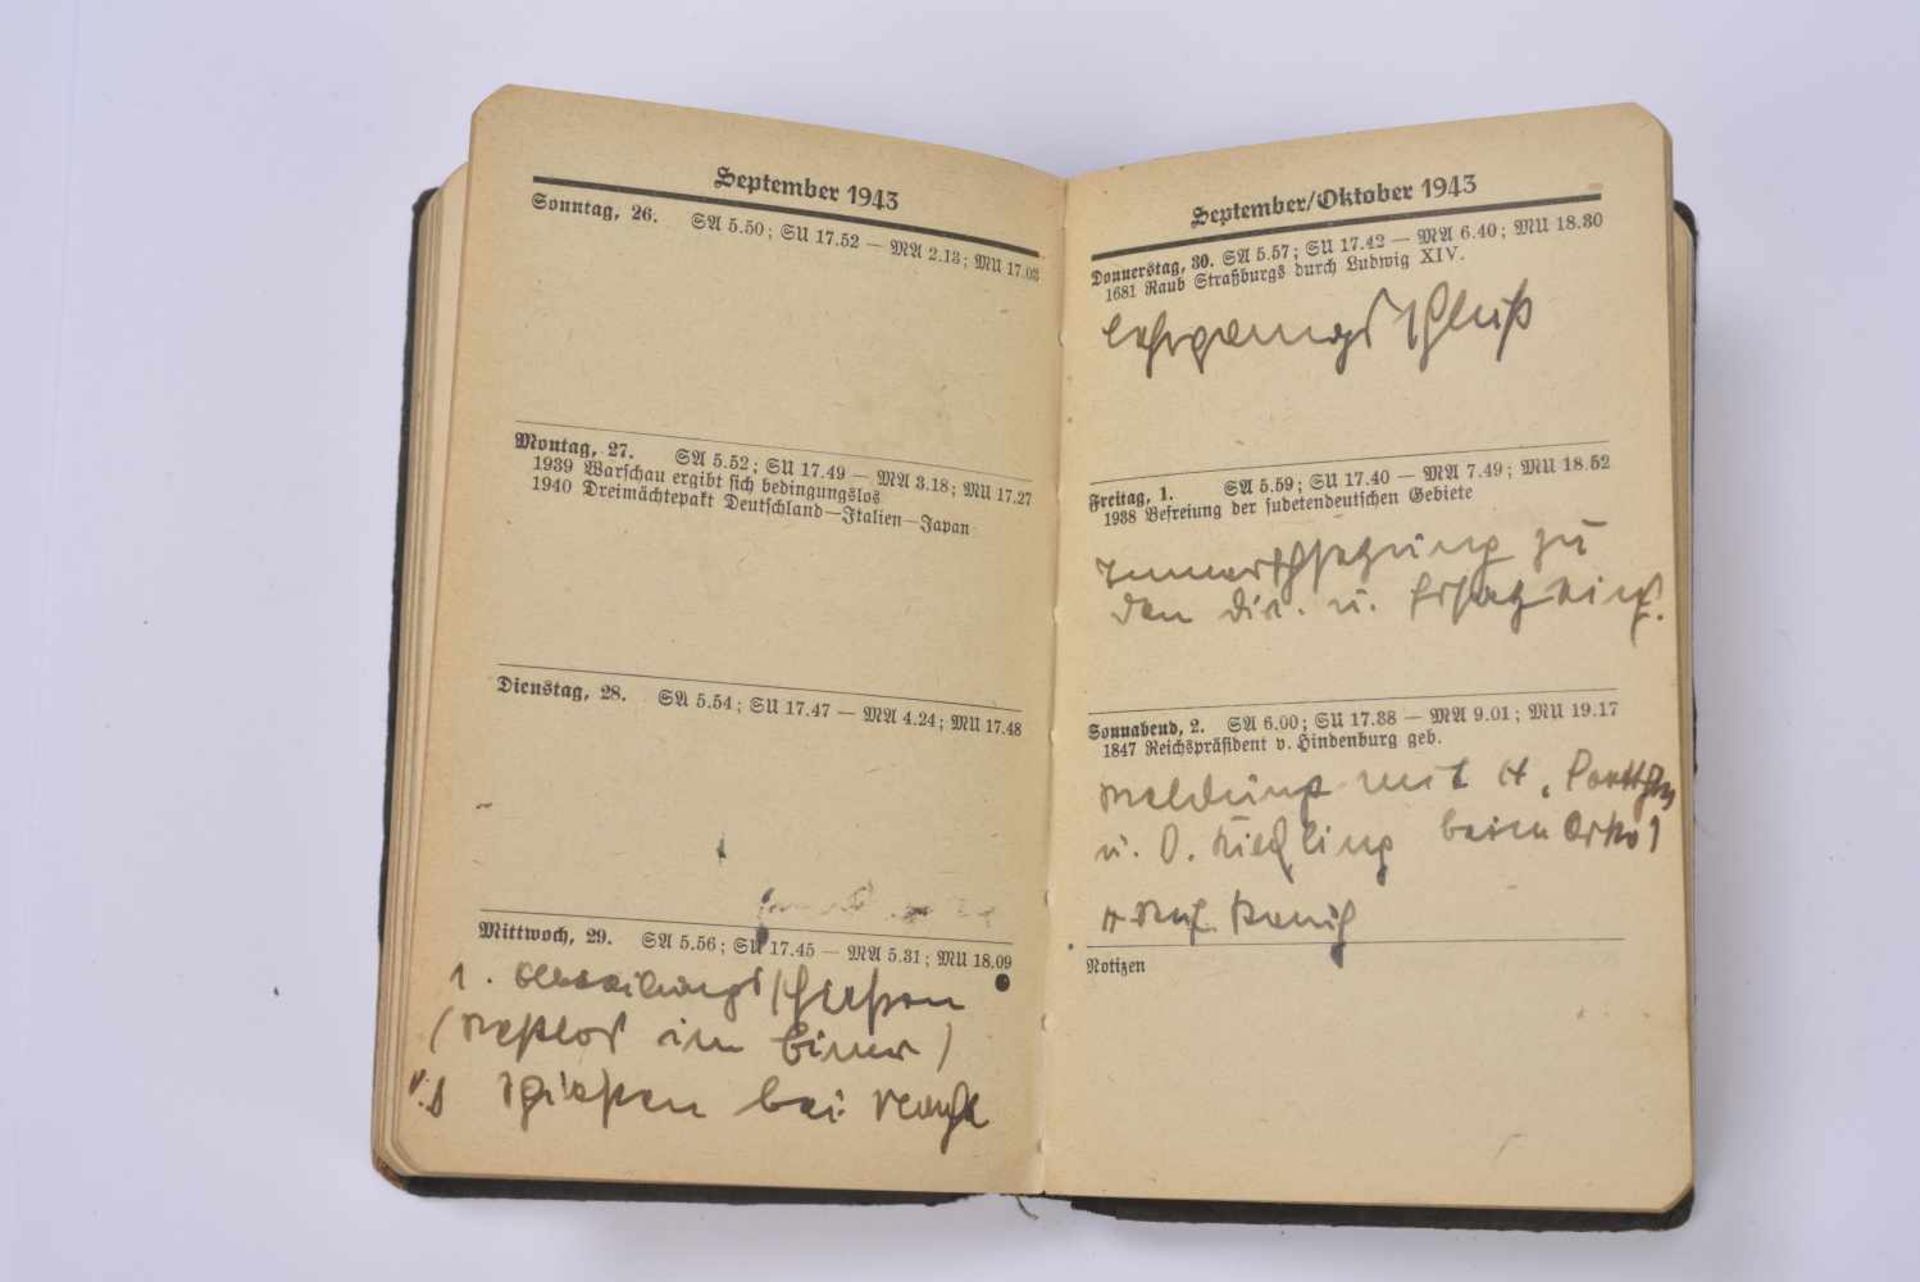 September 1943
Sonntag, 26. SA 5.50; SU 17.52 — MA 2.13; MU 17.03
Montag, 27. SA 5.52; SU 17.49 — MA 3.18; MU 17.27
1939 Warschau ergibt sich bedingungslos
1940 Dreimächtepakt Deutschland—Italien—Japan
Dienstag, 28. SA 5.54; SU 17.47 — MA 4.24; MU 17.48
Mittwoch, 29. SA 5.56; SU 17.45 — MA 5.31; MU 18.09
1. Abteilungsschießen
( im )
bei
September/Oktober 1943
Donnerstag, 30. SA 5.57; SU 17.42 — MA 6.40; MU 18.30
1681 Raub Straßburgs durch Ludwig XIV.
Lehrgangsschluß
Freitag, 1. SA 5.59; SU 17.40 — MA 7.49; MU 18.52
1938 Befreiung der sudetendeutschen Gebiete
zu
den Div. u. Ersatzeinh.
Sonnabend, 2. SA 6.00; SU 17.38 — MA 9.01; MU 19.17
1847 Reichspräsident v. Hindenburg geb.
Meldung mit H.
u. O. beim
Notizen